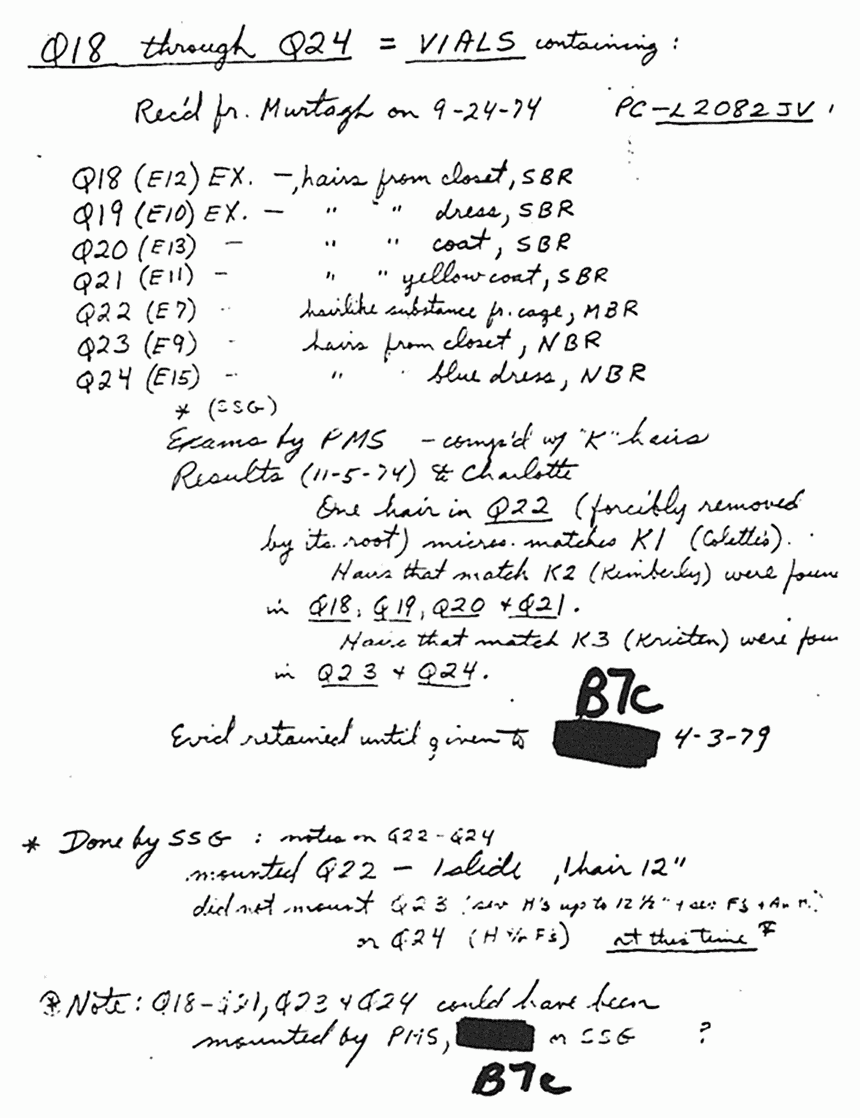 Q18 through Q24 = VIALS containing:
Rec'd fr. Murtagh on 9-24-74 PC-L2082 JV
Q18 (E12) EX. - hairs from closet, SBR
Q19 (E10) EX. - " " dress, SBR
Q20 (E13) - " " coat, SBR
Q21 (E11) - " " yellow coat, SBR
Q22 (E7) - hairlike substance fr. cage, MBR
Q23 (E9) - hairs from closet, NBR
Q24 (E15) - " " blue dress, NBR
* (SSG)
Exams by PMS - comp'd w/ "K" hairs
Results (11-5-74) to Charlotte
One hair in Q22 (forcibly removed
by its root) micros. matches K1 (Colette's).
Hairs that match K2 (Kimberly) were foun
in Q18, Q19, Q20 + Q21.
Hairs that match K3 (Kristen) were fou
in Q23 + Q24.
B7C
Evid retained until given to 4-3-79
* Done by SSG: notes on Q22-Q24
mounted Q22 - 1 slide, 1 hair 12"
did not mount Q23 (sev H's up to 12 1/2" + sev Fs + An H.)
or Q24 (H Fs) at this time *
* Note: Q18-Q21, Q23 + Q24 could have been
mounted by PMS, or SSG ?
B7C